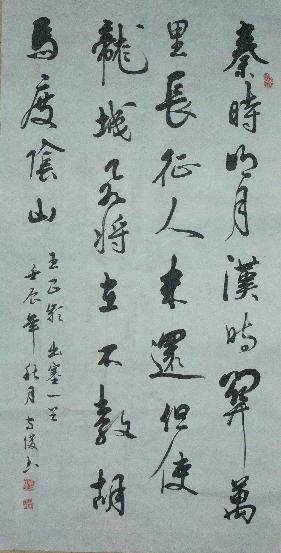 秦時明月漢時關萬
里長征人未還但使
龍城飛將在不教胡
馬度陰山
王昌龄出塞一首
壬辰年秋月书